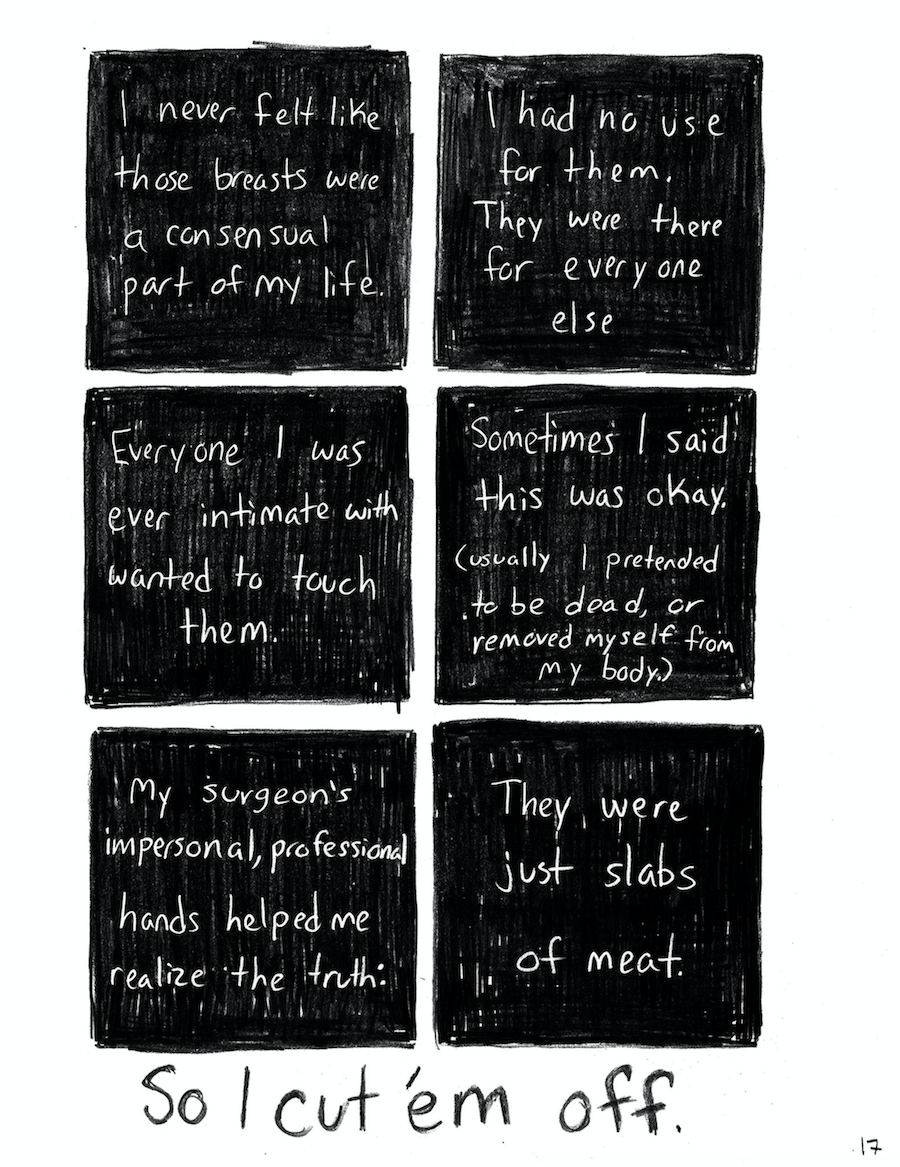 I never felt like
those breasts were
a consensual
part of my life.
I had no use
for them.
They were there
for everyone
else
Everyone I was
ever intimate with
wanted to touch
them.
Sometimes I said
this was okay.
(usually I pretended
to be dead, or
removed myself from
my body.)
My surgeon's
impersonal, professional
hands helped me
realize the truth:
They were
just slabs
of meat.
So I cut 'em off.
17